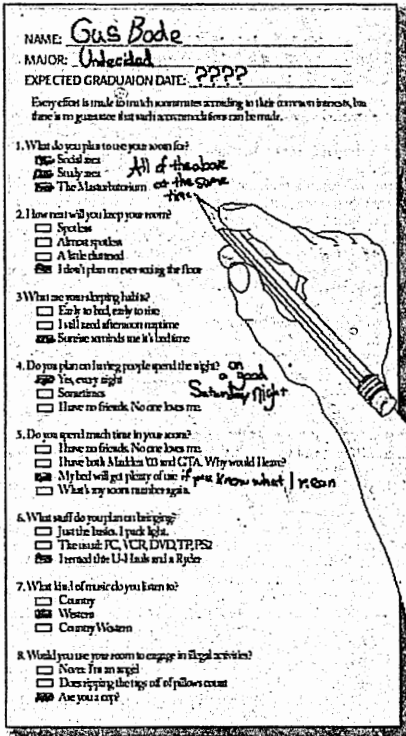 NAME: Gus Bode
MAJOR: Undecided
EXPECTED GRADUAION DATE: ????
Every effort is made to match roommates according to their common interests, but
there is no guarantee that such accommodations can be made.
1. What do you plan to use your room for?
Social area
Study area
The Masturbatorium
All of the above
at the same
time
2. How neat will you keep your room?
Spotless
Almost spotless
A little cluttered
I don't plan on ever seeing the floor
3 What are your sleeping habits?
Early to bed, early to rise
I still need afternoon naptime
Sunrise reminds me it's bedtime
4. Do you plan on having people spend the night?
Yes, every night
Sometimes
I have no friends. No one loves me.
on
a good
Saturday night
5. Do you spend much time in your room?
I have no friends. No one loves me.
I have both Madden '03 and GTA. Why would I leave?
My bed will get plenty of use if you know what I mean
What's my room number again.
6. What stuff do you plan on bringing?
Just the basics. I pack light.
The usual: PC, VCR, DVD, TP, PS2
I rented three U-Hauls and a Ryder
7. What kind of music do you listen to?
Country
Western
Country Western
8. Would you use your room to engage in illegal activities?
Never. I'm an angel
Does ripping the tags off of pillows count
Are you a cop?